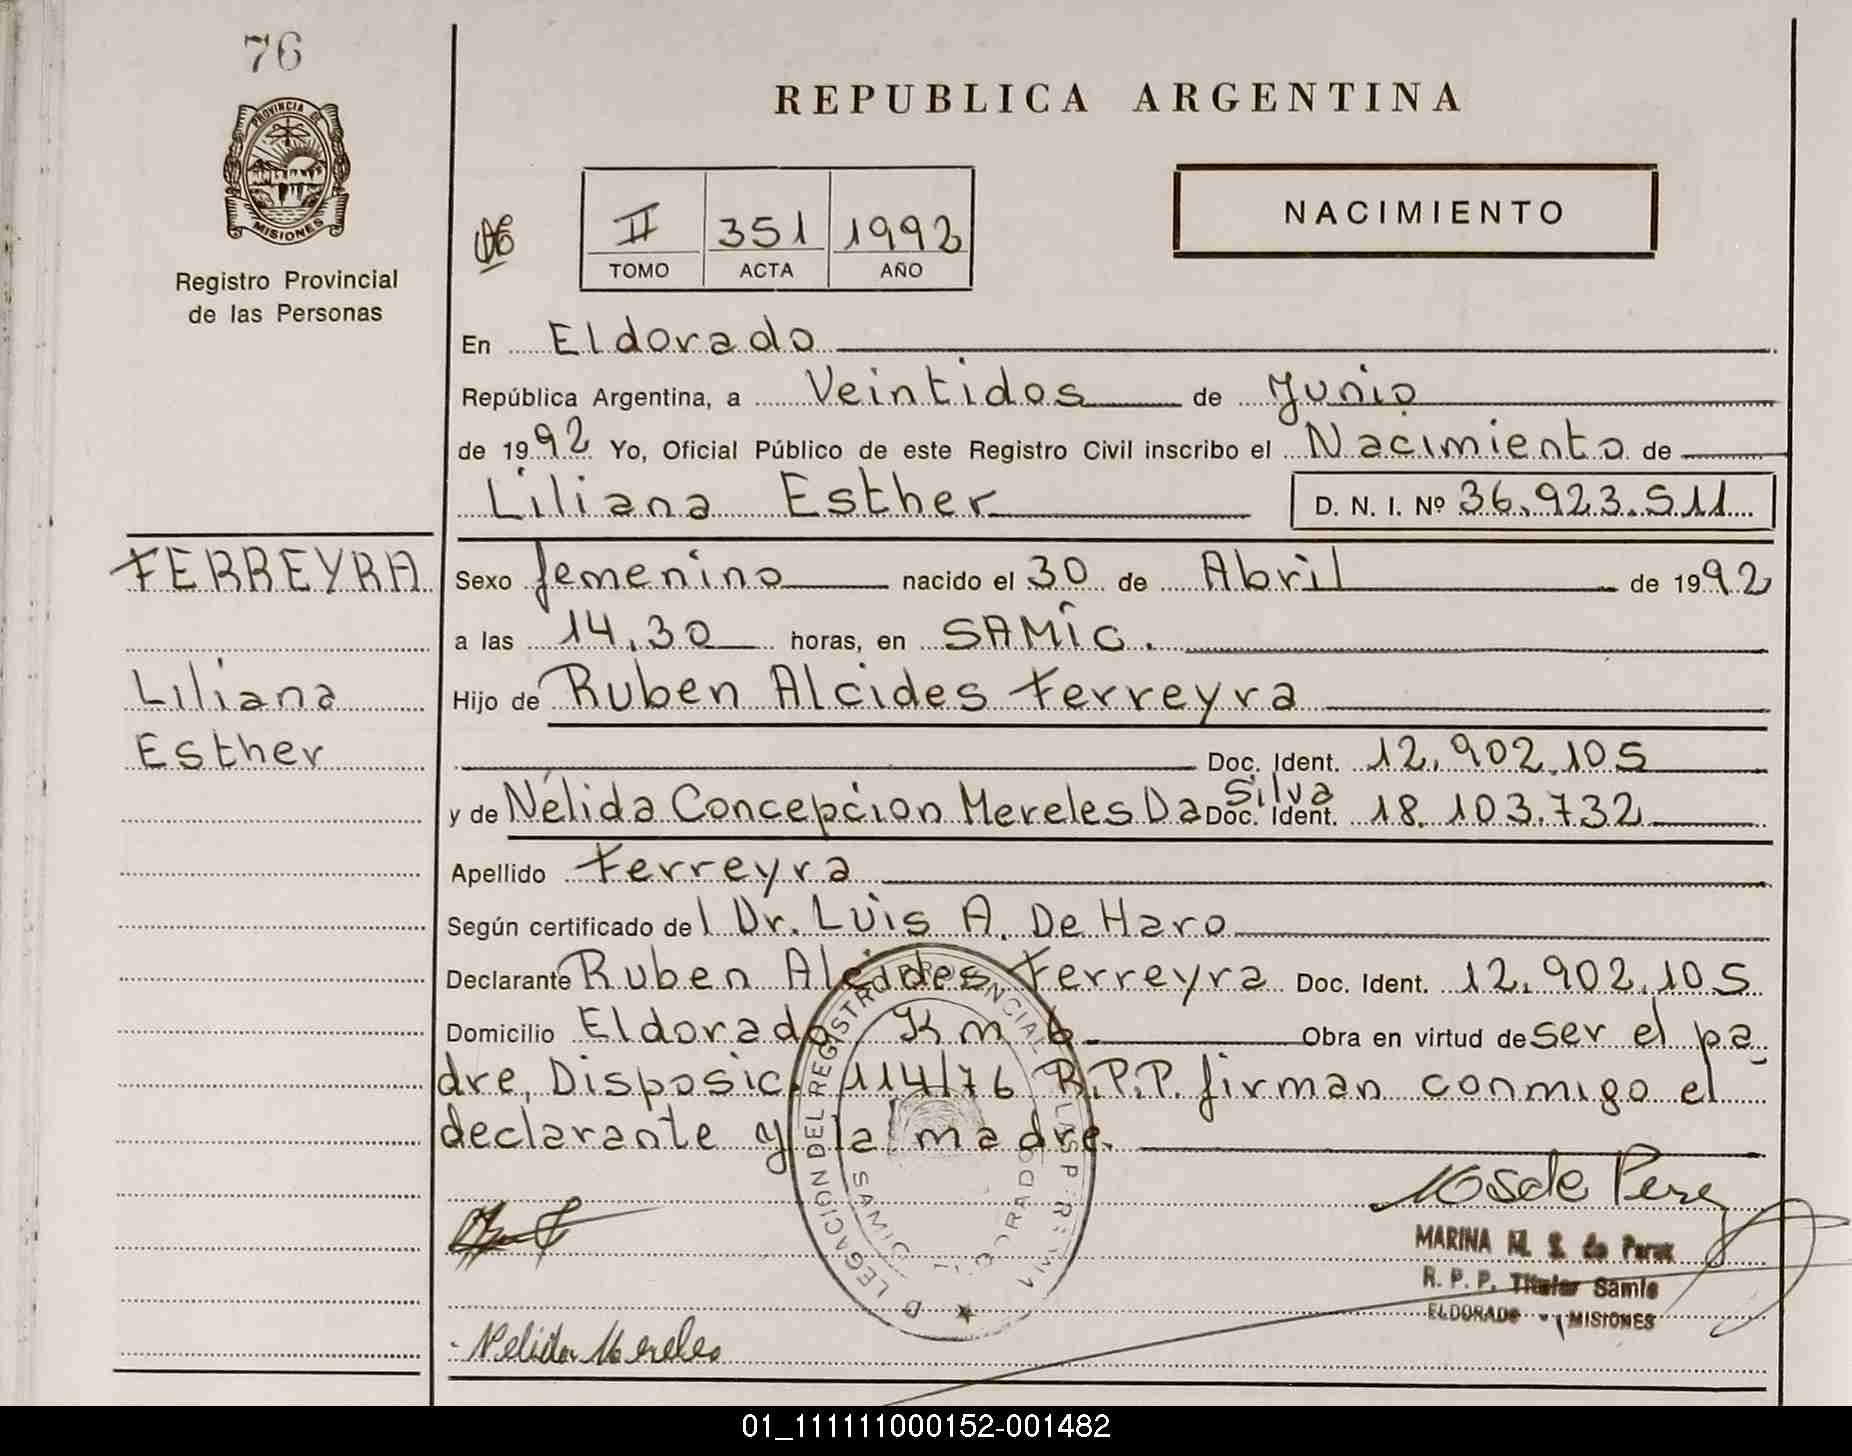 76
PROVINCIA DE
MISIONES
Registro Provincial
de las Personas
REPUBLICA ARGENTINA
II 351 1992
TOMO ACTA AÑO
NACIMIENTO
En Eldorado
República Argentina, a Veintidos de Junio
de 1992 Yo, Oficial Público de este Registro Civil inscribo el Nacimiento de
Liliana Esther D. N. I. Nº 36.923.511
FERREYRA
Liliana
Esther
Sexo femenino nacido el 30 de Abril de 1992
a las 14.30 horas, en SAMIC.
Hijo de Ruben Alcides Ferreyra
Doc. Ident. 12.902.105
y de Nélida Concepcion Mereles Da Silva Doc. Ident. 18.103.732
Apellido Ferreyra
Según certificado del Dr. Luis A. De Haro
Declarante Ruben Alcides Ferreyra Doc. Ident. 12.902.105
Domicilio Eldorado Km 6 Obra en virtud de ser el pa-
dre, Disposic. 114/76 R.P.P. firman conmigo el
declarante y la madre.
MARINA M. S. de Perez
R. P. P. Titular Samic
ELDORADO - MISIONES
Nelida Mereles
01_111111000152-001482